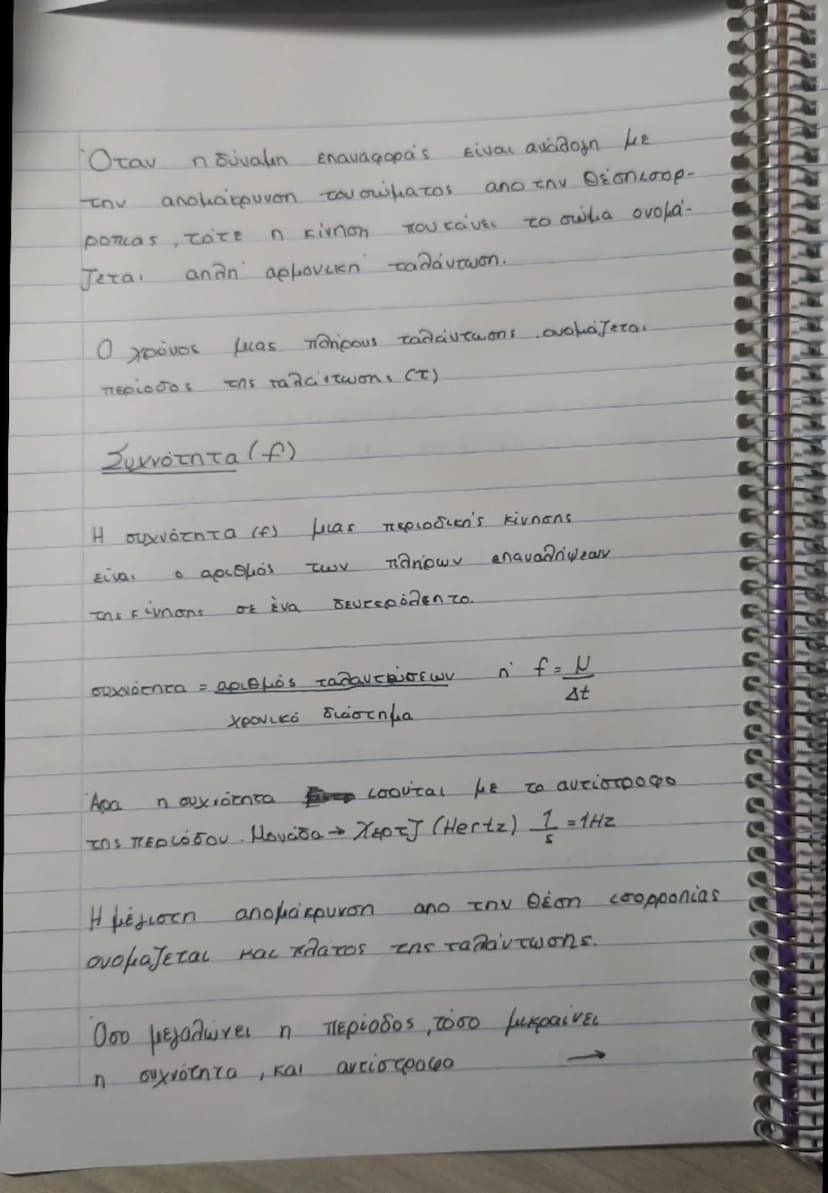 Όταν η δύναμη επαναφοράς είναι ανάλογη με
την απομάκρυνση του σώματος απο την θέση ισορ-
ροπιας, τότε η κίνηση που κάνει το σώμα ονομά-
ζεται απλή αρμονική ταλάντωση.
Ο χρόνος μιας πλήρους ταλάντωσης ονομάζεται
περίοδος της ταλάντωσης (τ)
Συχνότητα (f)
Η συχνότητα (f) μιας περιοδικής κίνησης
είναι ο αριθμός των πλήρων επαναλήψεων
της κίνησης σε ένα δευτερόλεπτο.
συχνότητα = αριθμός ταλαντώσεων ή f = N
χρονικό διάστημα Δt
Αρα η συχνότητα ισούται με το αντίστροφο
της περιόδου. Μονάδα → Χερτζ (Hertz) 1/s = 1Hz
Η μέγιστη απομάκρυνση απο την θέση ισορροπίας
ονομαζεται και πλατος της ταλάντωσης.
Όσο μεγαλώνει η περίοδος, τόσο μικραίνει
η συχνότητα, και αντίστροφα →